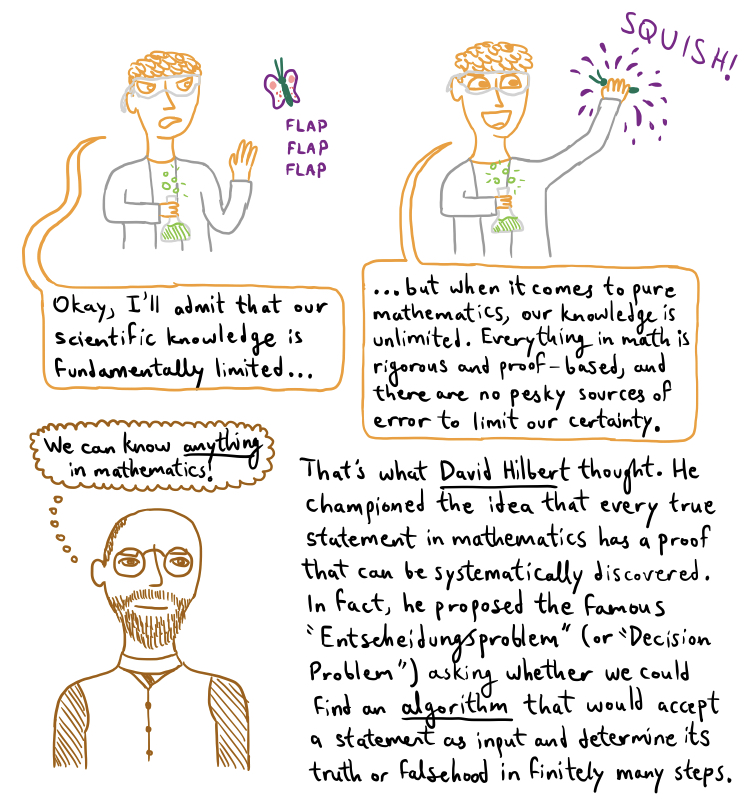 FLAP
FLAP
FLAP
SQUISH!
Okay, I'll admit that our
scientific knowledge is
fundamentally limited...
...but when it comes to pure
mathematics, our knowledge is
unlimited. Everything in math is
rigorous and proof-based, and
there are no pesky sources of
error to limit our certainty.
We can know anything
in mathematics!
That's what David Hilbert thought. He
championed the idea that every true
statement in mathematics has a proof
that can be systematically discovered.
In fact, he proposed the famous
"Entscheidungsproblem" (or "Decision
Problem") asking whether we could
find an algorithm that would accept
a statement as input and determine its
truth or falsehood in finitely many steps.